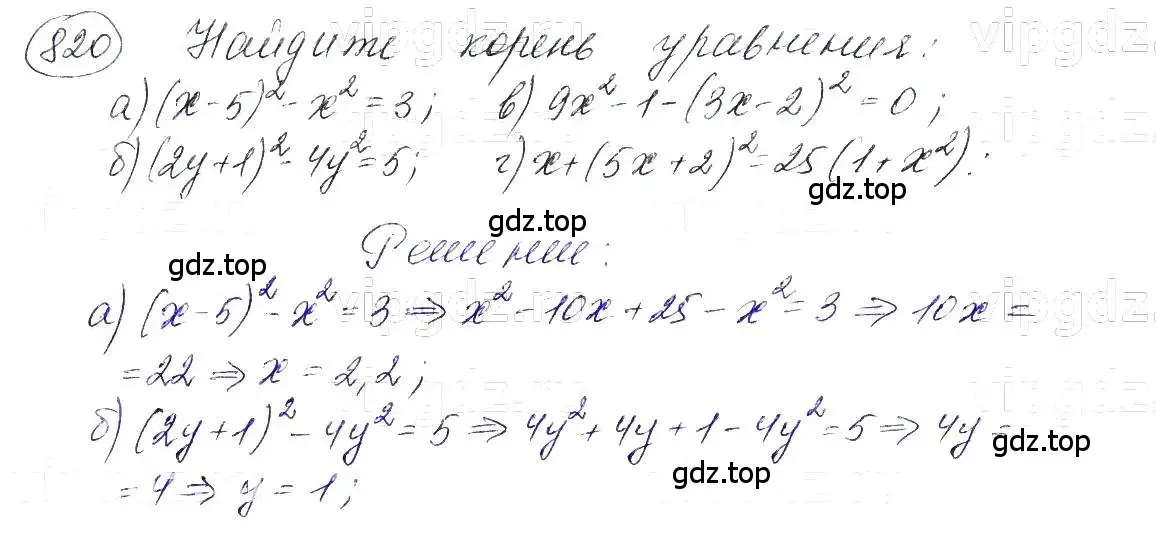 820 Найдите корень уравнения:
а) (x-5)² - x² = 3; в) 9x² - 1 - (3x-2)² = 0;
б) (2y+1)² - 4y² = 5; г) x + (5x+2)² = 25(1+x²).
gdz.top
gdz.top
Решение:
gdz.top
а) (x-5)² - x² = 3 ⇒ x² - 10x + 25 - x² = 3 ⇒ 10x =
= 22 ⇒ x = 2,2;
б) (2y+1)² - 4y² = 5 ⇒ 4y² + 4y + 1 - 4y² = 5 ⇒ 4y =
gdz.top
gdz.top
= 4 ⇒ y = 1;